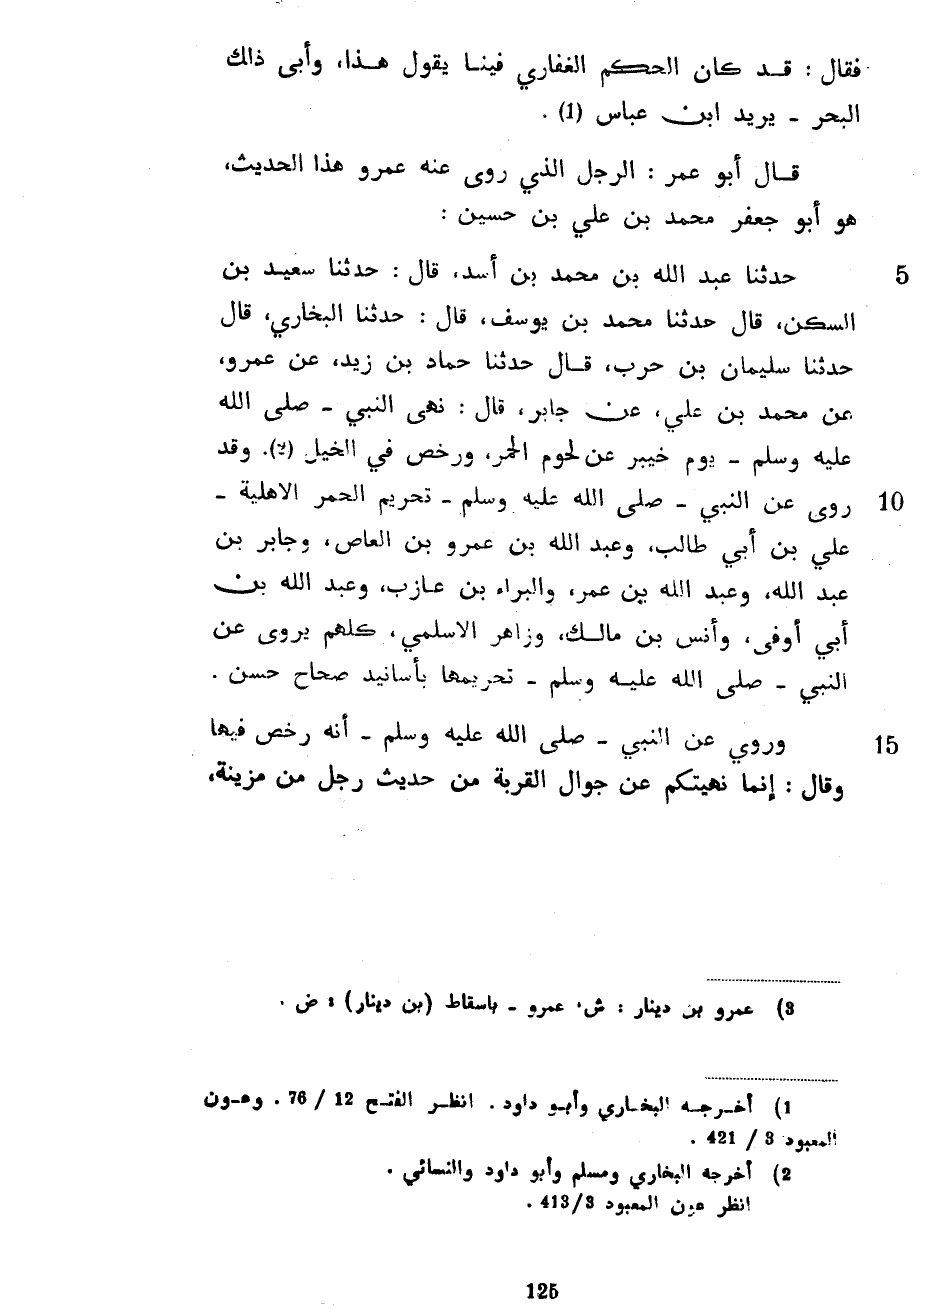 فقال : قد كان الحكم الغفاري فينا يقول هذا، وأبى ذاك
البحر - يريد ابن عباس (1) .
قال أبو عمر : الرجل الذي روى عنه عمرو هذا الحديث،
هو أبو جعفر محمد بن علي بن حسين :
5 حدثنا عبد الله بن محمد بن أسد، قال : حدثنا سعيد بن
السكن، قال حدثنا محمد بن يوسف، قال : حدثنا البخاري، قال
حدثنا سليمان بن حرب، قال حدثنا حماد بن زيد، عن عمرو،
عن محمد بن علي، عن جابر، قال : نهى النبي - صلى الله
عليه وسلم - يوم خيبر عن لحوم الحمر، ورخص في الخيل (2). وقد
10 روى عن النبي - صلى الله عليه وسلم - تحريم الحمر الاهلية -
علي بن أبي طالب، وعبد الله بن عمرو بن العاص، وجابر بن
عبد الله، وعبد الله بن عمر، والبراء بن عازب، وعبد الله بن
أبي أوفى، وأنس بن مالك، وزاهر الاسلمي، كلهم يروى عن
النبي - صلى الله عليه وسلم - تحريمها بأسانيد صحاح حسن .
15 وروي عن النبي - صلى الله عليه وسلم - أنه رخص فيها
وقال : إنما نهيتكم عن جوال القرية من حديث رجل من مزينة،
3) عمرو بن دينار : ش، عمرو - باسقاط (بن دينار) : ض .
1) أخرجه البخاري وأبو داود . انظر الفتح 12 / 76 . وعون
المعبود 3 / 421 .
2) أخرجه البخاري ومسلم وأبو داود والنسائي .
انظر عون المعبود 3/413 .
125